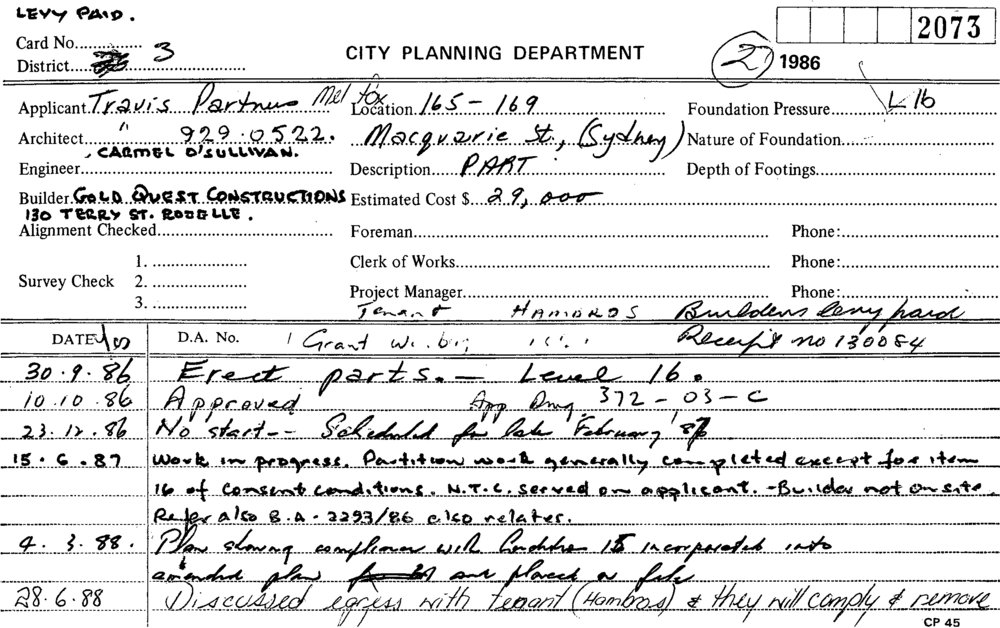 LEVY PAID.
2073
Card No. 3
CITY PLANNING DEPARTMENT
2 1986
District
Applicant Travis Partners Mel Fox Location 165-169 Foundation Pressure L16
Architect " 929.0522. Macquarie St., (Sydney) Nature of Foundation
, CARMEL O'SULLIVAN.
Engineer Description PART Depth of Footings
Builder GOLD QUEST CONSTRUCTIONS Estimated Cost $ 29,000
130 TERRY ST. ROZELLE.
Alignment Checked Foreman Phone:
1. Clerk of Works Phone:
Survey Check 2.
3. Project Manager Phone:
Tenant HAMBROS Builders levy paid
DATE D.A. No. Grant Receipt no 130084
30.9.86 Erect parts. - Level 16.
10.10.86 Approved App Dwg. 372-03-C
23.12.86 No start -- Scheduled for late February '87
15.6.87 Work in progress. Partition work generally completed except for item
16 of consent conditions. N.T.C. served on applicant. - Builder not on site.
Refer also B.A. 2293/86 also relates.
4.3.88. Plan showing compliance with Condition 15 incorporated into
amended plan and placed on file
28.6.88 Discussed egress with tenant (Hambros) & they will comply & remove
CP 45